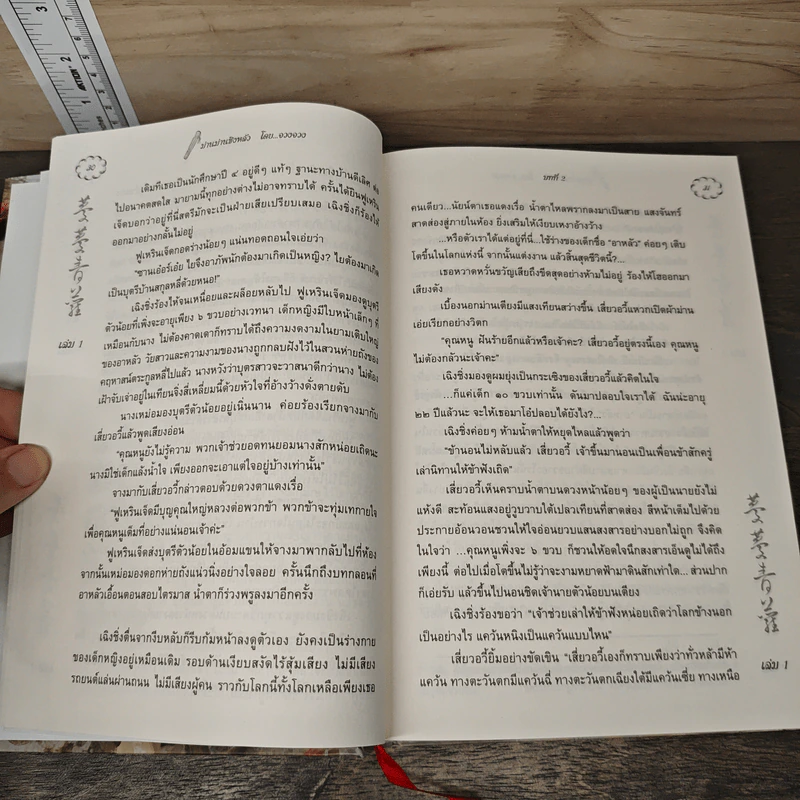 ม่านม่านชิงหลัว โดย...จวงจวง
๓๐
เดิมทีเธอเป็นนักศึกษาปี ๔ อยู่ดีๆ แท้ๆ ฐานะทางบ้านดีเลิศ
ไปอนาคตสดใส มายามนี้ทุกอย่างต่างไม่อาจทราบได้ ครั้นได้ยินฟูเหริน
เจ็ดบอกว่าอยู่ที่นี่สตรีมักจะเป็นฝ่ายเสียเปรียบเสมอ เฉิงซิ่งก็ร้องไห้
ออกมาอย่างกลั้นไม่อยู่
ฟูเหรินเจ็ดกอดร่างน้อยๆ แน่นทอดถอนใจเอ่ยว่า
"ซานเอ๋อร์เอ๋ย ไยจึงอาภัพนักต้องมาเกิดเป็นหญิง? ไยต้องมาเกิด
เป็นบุตรีบ้านสกุลหลี่ด้วยหนอ!"
เฉิงซิ่งร้องไห้จนเหนื่อยและผล็อยหลับไป ฟูเหรินเจ็ดมองดูบุตรี
ตัวน้อยที่เพิ่งจะอายุเพียง ๖ ขวบอย่างเวทนา เด็กหญิงมีใบหน้าเล็กๆ ที่
เหมือนกับนาง ไม่ต้องคาดเดาก็ทราบได้ถึงความงดงามในยามเติบใหญ่
ของอาหลัว วัยสาวและความงามของนางถูกกลบฝังไว้ในสวนท่ายถังของ
คฤหาสน์ตระกูลหลี่ไปแล้ว นางหวังว่าบุตรสาวจะวาสนาดีกว่านาง ไม่ต้อง
เฝ้าจับเจ่าอยู่ในเทียนจิ่งสี่เหลี่ยมนี้ด้วยหัวใจที่อ้างว้างดั่งตายดับ
นางเหม่อมองบุตรีตัวน้อยอยู่เนิ่นนาน ค่อยร้องเรียกจางมากับ
เสี่ยวอวี้แล้วพูดเสียงอ่อน
"คุณหนูยังไม่รู้ความ พวกเจ้าช่วยอดทนยอมนางสักหน่อยเถิดนะ
นางมิใช่เด็กแล้งน้ำใจ เพียงออกจะเอาแต่ใจอยู่บ้างเท่านั้น"
จางมากับเสี่ยวอวี้กล่าวตอบด้วยดวงตาแดงเรื่อ
"ฟูเหรินเจ็ดมีบุญคุณใหญ่หลวงต่อพวกข้า พวกข้าจะทุ่มเทกายใจ
เพื่อคุณหนูเต็มที่อย่างแน่นอนเจ้าค่ะ"
ฟูเหรินเจ็ดส่งบุตรีตัวน้อยในอ้อมแขนให้จางมาพากลับไปที่ห้อง
จากนั้นเหม่อมองดอกท่ายถังแน่วนิ่งอย่างใจลอย ครั้นนึกถึงบทกลอนที่
อาหลัวเอื้อนตอนสอบไตรมาส น้ำตาก็ร่วงพรูลงมาอีกครั้ง
เฉิงซิ่งตื่นจากงีบหลับก็รีบก้มหน้าลงดูตัวเอง ยังคงเป็นร่างกาย
ของเด็กหญิงอยู่เหมือนเดิม รอบด้านเงียบสงัดไร้สุ้มเสียง ไม่มีเสียง
รถยนต์แล่นผ่านถนน ไม่มีเสียงผู้คน ราวกับโลกนี้ทั้งโลกเหลือเพียงเธอ
蔓蔓青蘿
เล่ม 1
บทที่ 2
๓๑
คนเดียว...นัยน์ตาเธอแดงเรื่อ น้ำตาไหลพรากลงมาเป็นสาย แสงจันทร์
สาดส่องสู่ภายในห้อง ยิ่งเสริมให้เงียบเหงาอ้างว้าง
...หรือตัวเราได้แต่อยู่ที่นี่...ใช้ร่างของเด็กชื่อ "อาหลัว" ค่อยๆ เติบ
โตขึ้นในโลกแห่งนี้ จากนั้นแต่งงาน แล้วสิ้นสุดชีวิตนี้?...
เธอหวาดหวั่นขวัญเสียถึงขีดสุดอย่างห้ามไม่อยู่ ร้องไห้โฮออกมา
เสียงดัง
เบื้องนอกม่านเตียงมีแสงเทียนสว่างขึ้น เสี่ยวอวี้แหวกเปิดผ้าม่าน
เอ่ยเรียกอย่างวิตก
"คุณหนู ฝันร้ายอีกแล้วหรือเจ้าคะ? เสี่ยวอวี้อยู่ตรงนี้เอง คุณหนู
ไม่ต้องกลัวนะเจ้าคะ"
เฉิงซิ่งมองดูผมยุ่งเป็นกระเซิงของเสี่ยวอวี้แล้วคิดในใจ
...ก็แค่เด็ก ๑๐ ขวบเท่านั้น ดันมาปลอบใจเราได้ ฉันน่ะอายุ
๒๒ ปีแล้วนะ จะให้เธอมาโอ๋ปลอบได้ยังไง?...
เฉิงซิ่งค่อยๆ ห้ามน้ำตาให้หยุดไหลแล้วพูดว่า
"ข้านอนไม่หลับแล้ว เสี่ยวอวี้ เจ้าขึ้นมานอนเป็นเพื่อนข้าสักครู่
เล่านิทานให้ข้าฟังเถิด"
เสี่ยวอวี้เห็นคราบน้ำตาบนดวงหน้าน้อยๆ ของผู้เป็นนายยังไม่
แห้งดี สะท้อนแสงอยู่วูบวาบใต้เปลวเทียนที่สาดส่อง สีหน้าเต็มไปด้วย
ประกายอ้อนวอนชวนให้ใจอ่อนยวบแสนสงสารอย่างบอกไม่ถูก จึงคิด
ในใจว่า ...คุณหนูเพิ่งจะ ๖ ขวบ ก็ชวนให้อดใจนึกสงสารเอ็นดูไม่ได้ถึง
เพียงนี้ ต่อไปเมื่อโตขึ้นไม่รู้ว่าจะงามหยาดฟ้ามาดินสักเท่าใด... ส่วนปาก
ก็เอ่ยรับ แล้วขึ้นไปนอนชิดเจ้านายตัวน้อยบนเตียง
เฉิงซิ่งร้องขอว่า "เจ้าช่วยเล่าให้ข้าฟังหน่อยเถิดว่าโลกข้างนอก
เป็นอย่างไร แคว้นหนิงเป็นแคว้นแบบไหน"
เสี่ยวอวี้ยิ้มอย่างขัดเขิน "เสี่ยวอวี้เองก็ทราบเพียงว่าทั่วหล้ามีห้า
แคว้น ทางตะวันตกมีแคว้นฉี่ ทางตะวันตกเฉียงใต้มีแคว้นเซี่ย ทางเหนือ
蔓蔓青蘿
เล่ม 1